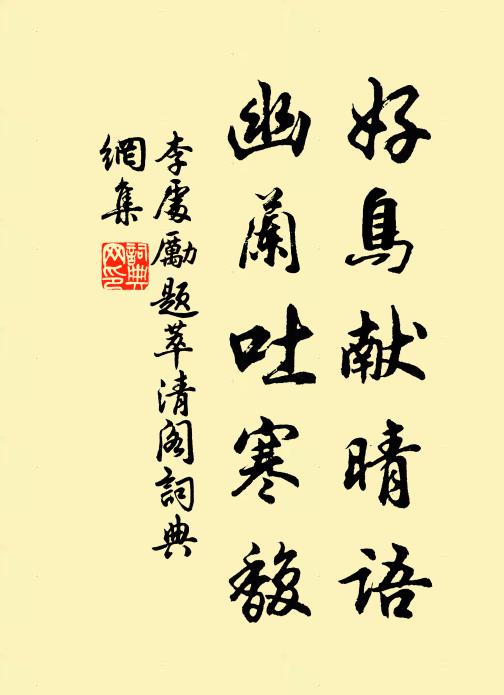 好鳥献晴語
幽蘭吐寒馥
李處勵題萃清阁詞典
網集
詞典
网印